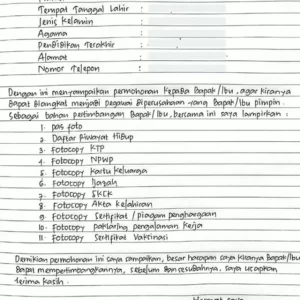 Tempat Tanggal Lahir :
Jenis Kelamin :
Agama :
Pendidikan Terakhir :
Alamat :
Nomor Telepon :
Dengan ini menyampaikan permohonan kepada Bapak/Ibu, agar kiranya
dapat diangkat menjadi pegawai diperusahaan yang Bapak/Ibu pimpin.
Sebagai bahan pertimbangan Bapak/Ibu, bersama ini saya lampirkan :
1. pas foto
2. Daftar Riwayat Hidup
3. Fotocopy KTP
4. Fotocopy NPWP
5. Fotocopy Kartu Keluarga
6. Fotocopy Ijazah
7. Fotocopy SKCK
8. Fotocopy Akta Kelahiran
9. Fotocopy Sertifikat / piagam penghargaan
10. Fotocopy paklaring pengalaman kerja
11. Fotocopy Sertifikat Vaksinasi
Demikian permohonan ini saya sampaikan, besar harapan saya kiranya Bapak/Ibu
dapat mempertimbangkannya, sebelum dan sesudahnya, saya ucapkan
terima kasih.
Hormat saya